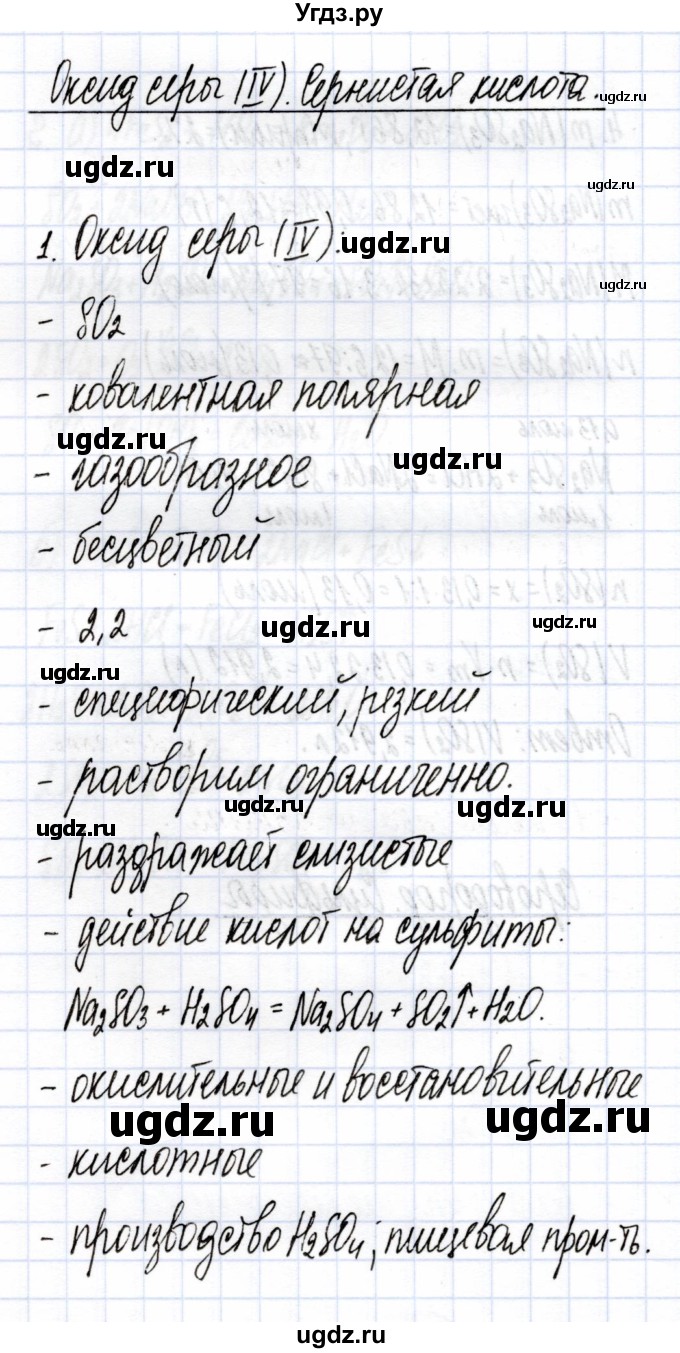 Угдз.ру
Оксид серы (IV). Сернистая кислота.
ugdz.ru
ugdz.ru
ugdz.ru
1. Оксид серы (IV):
ugdz.ru
- SO2
- ковалентная полярная
ugdz.ru
ugdz.ru
- газообразное
- бесцветный
- 2,2
ugdz.ru
ugdz.ru
ugdz.ru
- специфический, резкий
- растворим ограниченно.
ugdz.ru
ugdz.ru
ugdz.ru
- раздражает слизистые
- действие кислот на сульфиты:
Na2SO3 + H2SO4 = Na2SO4 + SO2↑ + H2O.
- окислительные и восстановительные
ugdz.ru
ugdz.ru
- кислотные
- производство H2SO4; пищевая пром-ть.
ugdz.ru
ugdz.ru